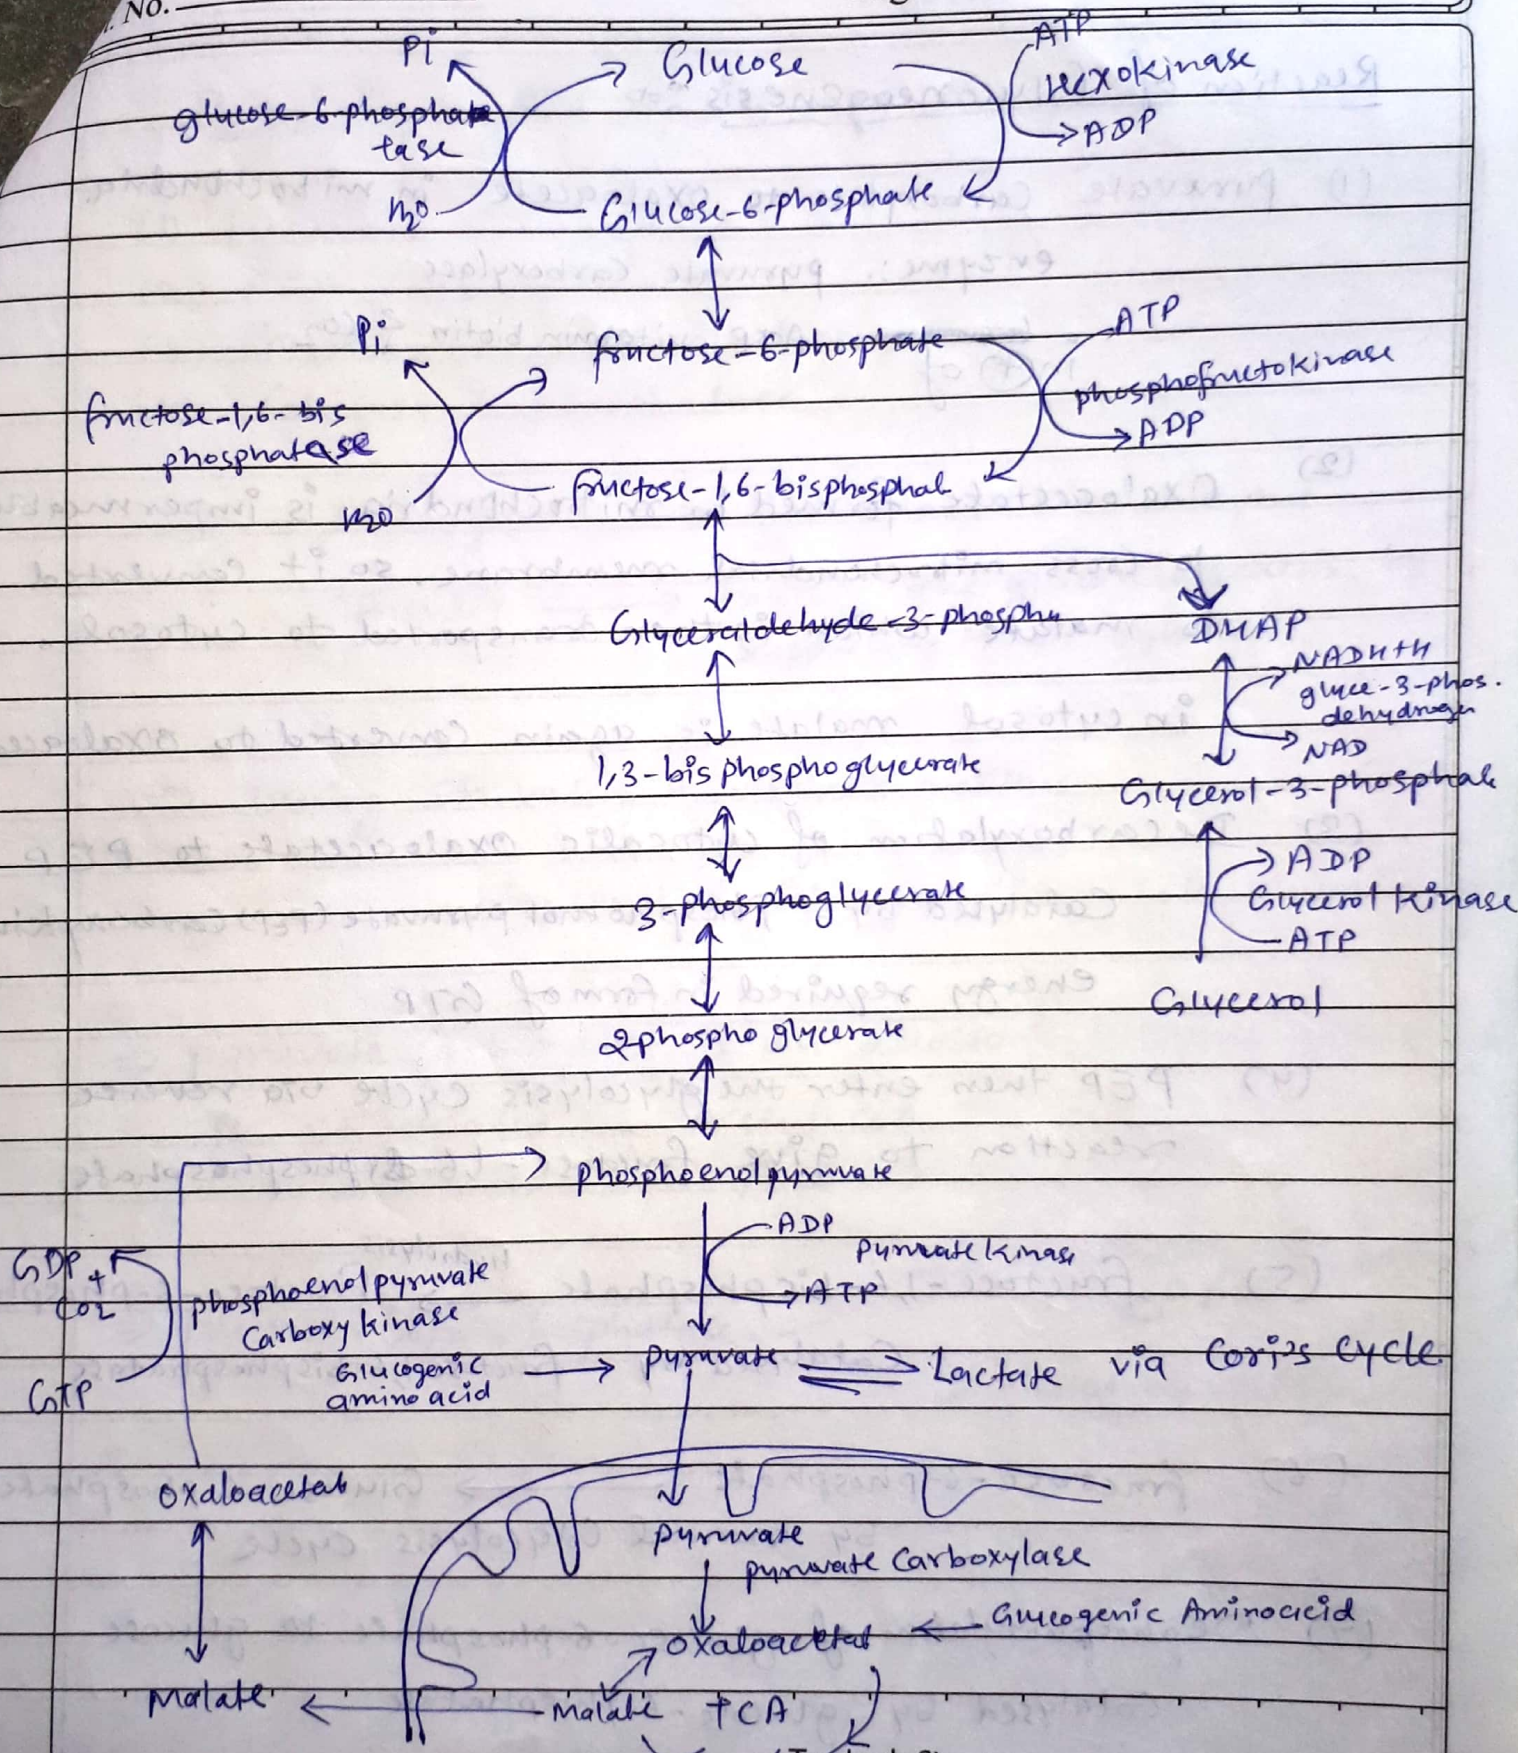 No.
Pi
Glucose
ATP
Hexokinase
ADP
glucose-6-phospha
tase
H2O
Glucose-6-phosphate
Pi
fructose-6-phosphate
ATP
phosphofructokinase
ADP
fructose-1,6-bis
phosphatase
fructose-1,6-bisphosphat
H2O
Glyceraldehyde-3-phospha
DHAP
NADH+H
glyce-3-phos.
dehydrogen
NAD
1,3-bisphosphoglycerate
Glycerol-3-phosphat
ADP
3-phosphoglycerate
Glycerol kinase
ATP
Glycerol
2phospho glycerate
phosphoenolpyruvate
ADP
pyruvate kinase
ATP
GDP +
CO2
phosphoenolpyruvate
Carboxykinase
GTP
Glucogenic
amino acid
pyruvate
Lactate via Cori's Cycle
Oxaloacetat
pyruvate
pyruvate Carboxylase
Glucogenic Aminoacid
Oxaloacetat
Malate
Malate
TCA